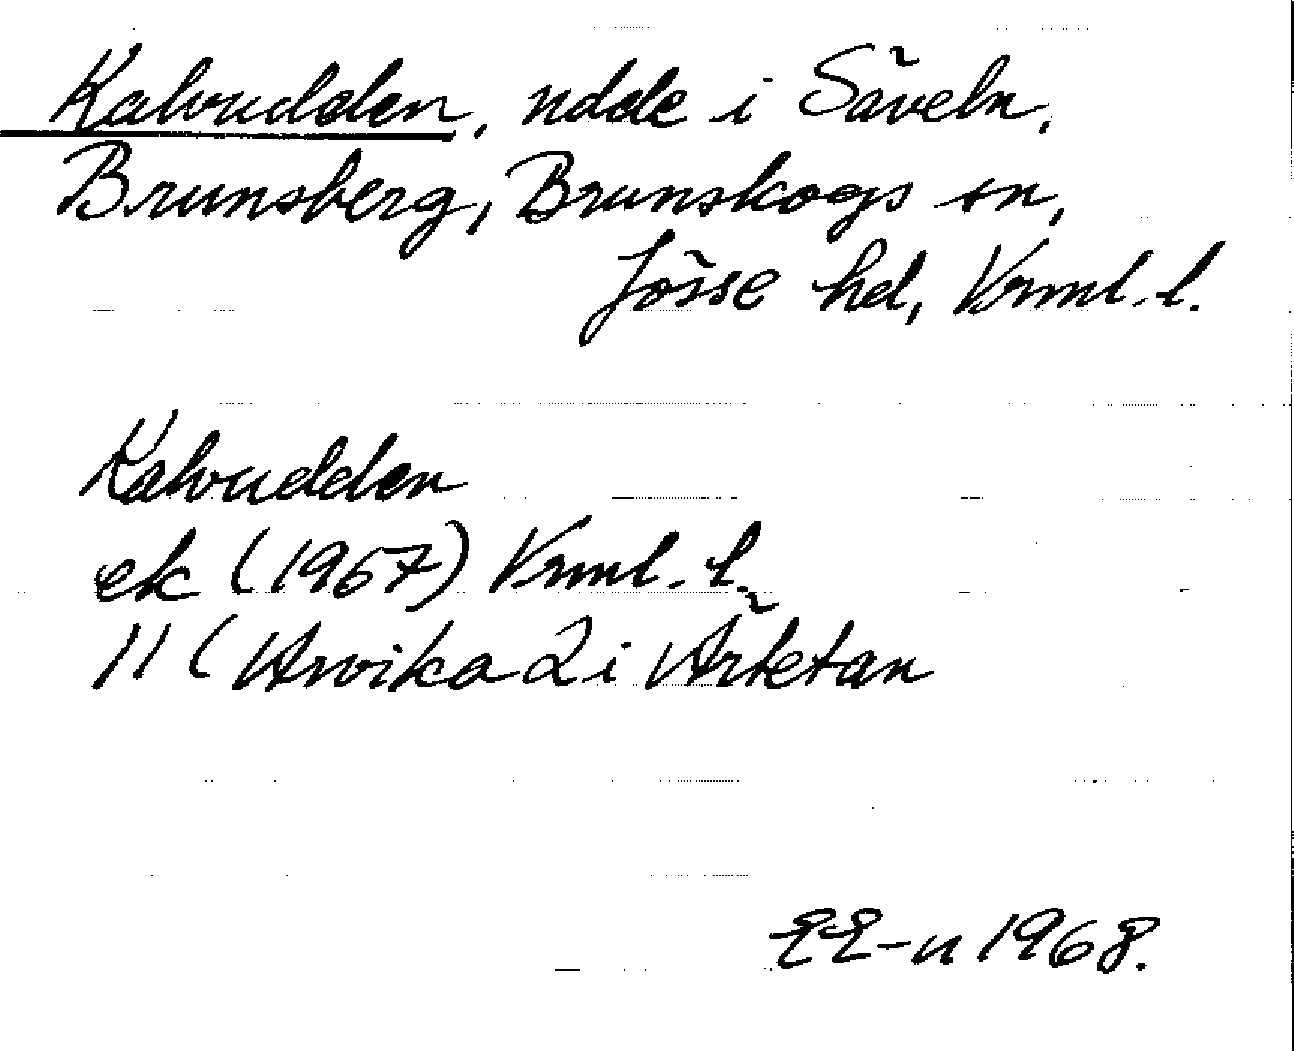 Kalvudden, udde i Säveln,
Brunsberg, Brunskogs sn,
Jösse hd, Vrml. l.
Kalvudden
ek (1967) Vrml. l.
11 (Arvika 2 i Årketan
EE-n 1968.